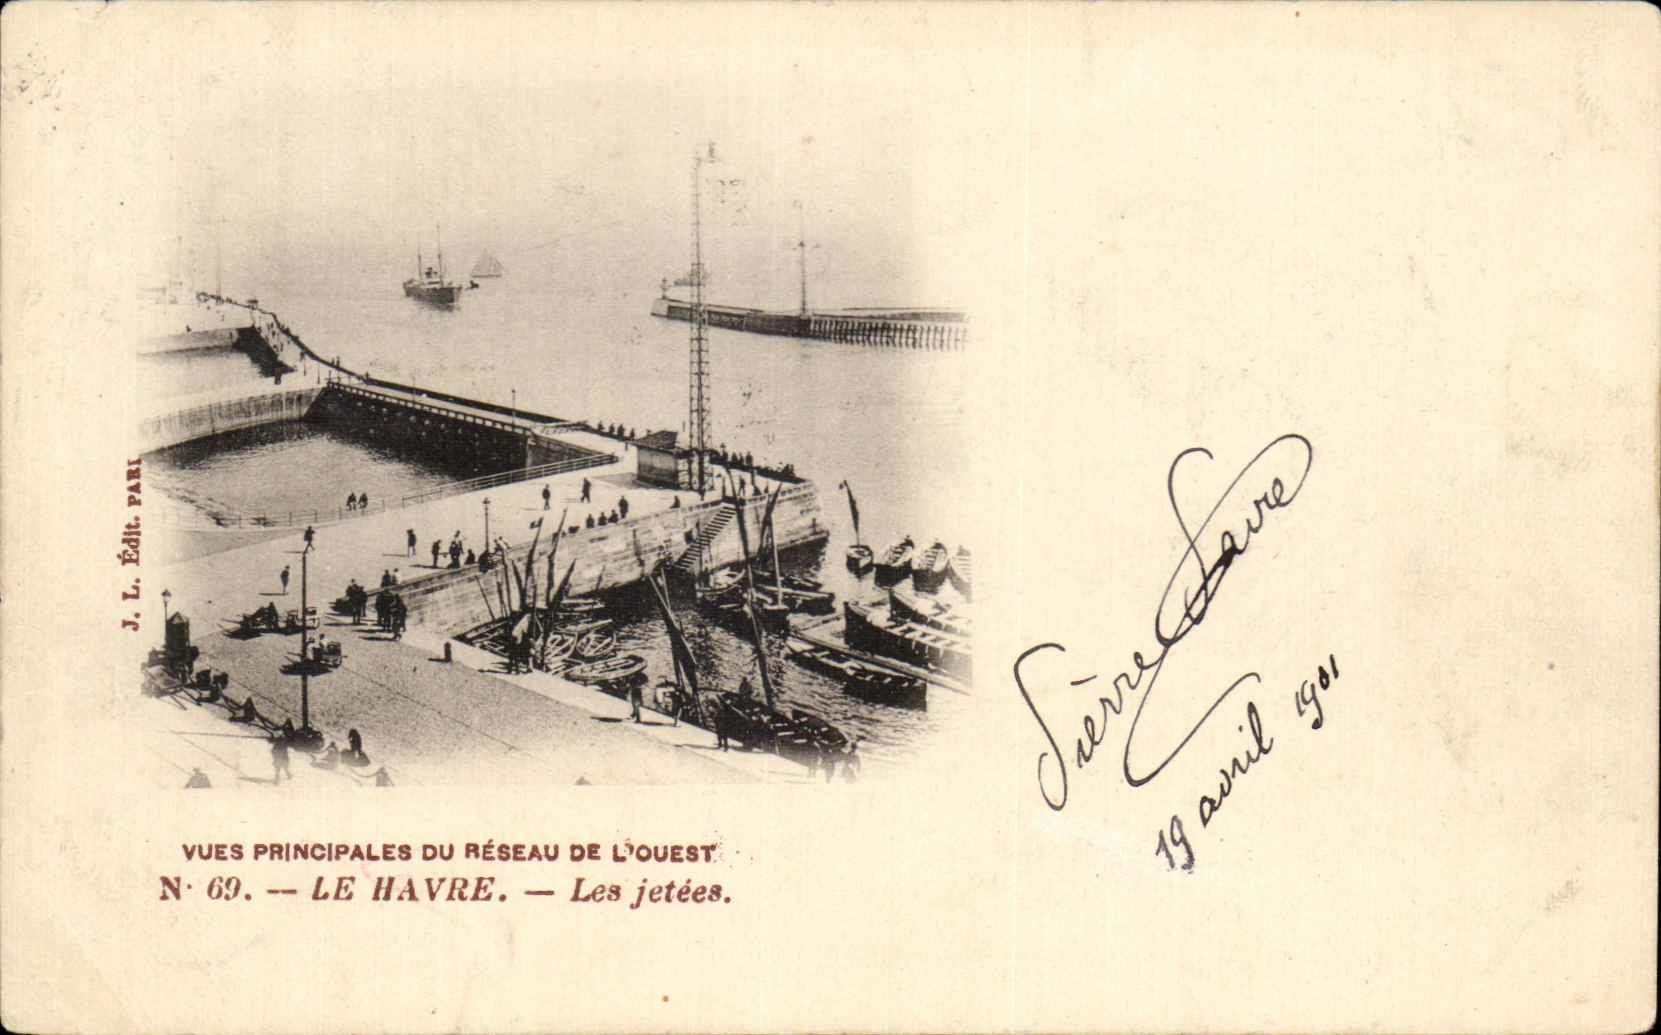 J. L. Édit. PARI
VUES PRINCIPALES DU RÉSEAU DE L'OUEST
N· 69. — LE HAVRE. — Les jetées.
Pierre
19 avril 1901